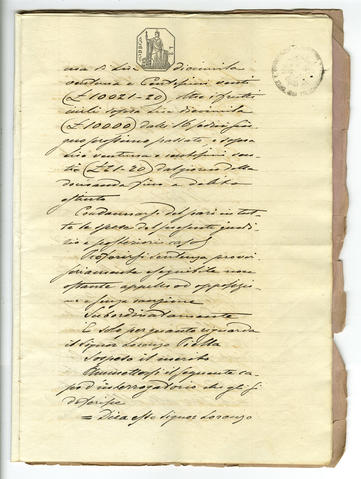 ma di Lire diecimila
ventuna e Centesimi venti
(£10021-20), oltre i frutti
civili sopra Lire diecimila
(£10000) dalli 16
prossimo passato, e sopra
Lire ventuna e centesimi ven
ti (£21-20) dal giorno della
domanda fino a debito
estinto
Condannarsi del pari in tut
te le spese del presente giudi
zio e posteriori
Proferirsi sentenza provvi
soriamente eseguibile non
ostante appello od opposizio
ne e senza cauzione
Subordinatamente
E solo per quanto riguarda
il Signor Lorenzo
Sospeso il merito
Ammettersi il seguente ca
po d'interrogatorio che gli si
deferisce
= Dica esso Signor Lorenzo